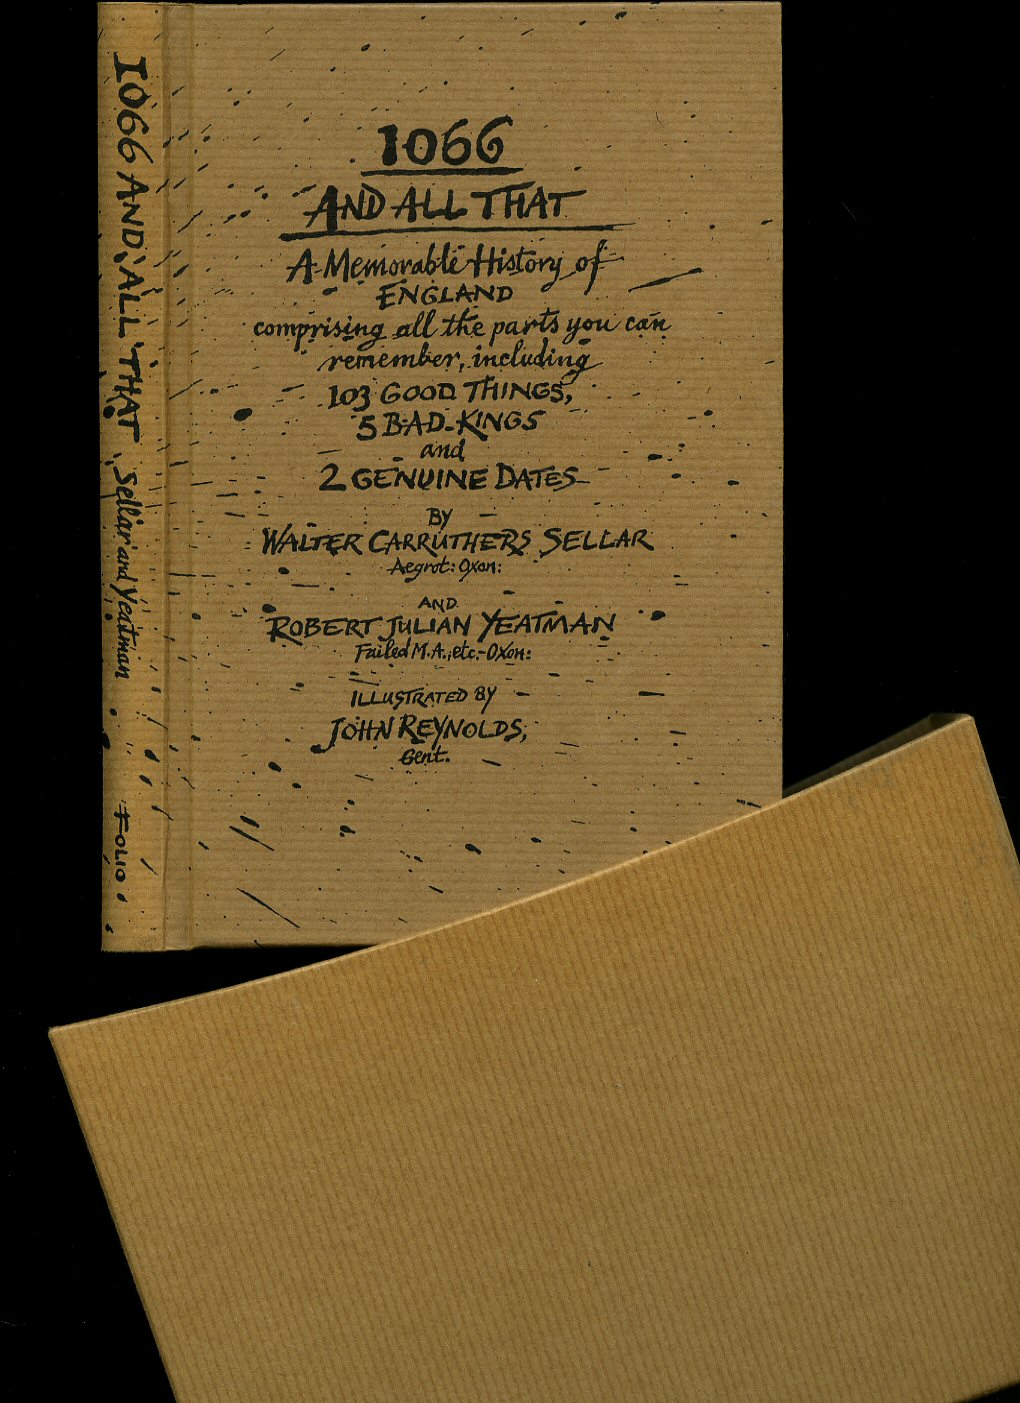 1066 AND ALL THAT Sellar and Yeatman FOLIO
1066
AND ALL THAT
A Memorable History of
ENGLAND
comprising all the parts you can
remember, including
103 GOOD THINGS,
5 BAD KINGS
and
2 GENUINE DATES
BY
WALTER CARRUTHERS SELLAR
Aegrot: Oxon:
AND
ROBERT JULIAN YEATMAN
Failed M.A., etc. Oxon:
ILLUSTRATED BY
JOHN REYNOLDS,
Gent.